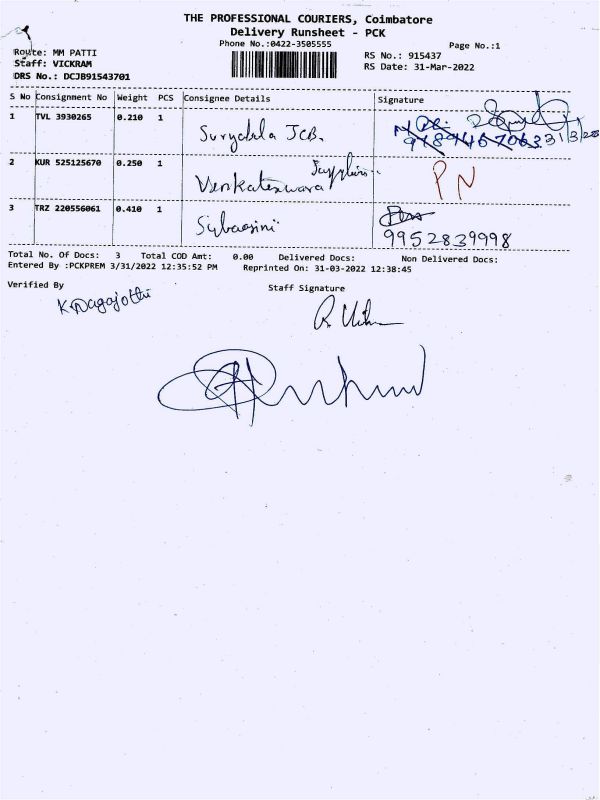 THE PROFESSIONAL COURIERS, Coimbatore
Delivery Runsheet - PCK
Phone No.:0422-3505555
Page No.:1
Route: MM PATTI
Staff: VICKRAM
DRS No.: DCJB91543701
RS No.: 915437
RS Date: 31-Mar-2022
S No Consignment No Weight PCS Consignee Details Signature
1 TVL 3930265 0.210 1
2 KUR 525125670 0.250 1 Venkateswara PN
3 TRZ 220556061 0.410 1
9952839998
Total No. Of Docs: 3 Total COD Amt: 0.00 Delivered Docs: Non Delivered Docs:
Entered By :PCKPREM 3/31/2022 12:35:52 PM Reprinted On: 31-03-2022 12:38:45
Verified By Staff Signature